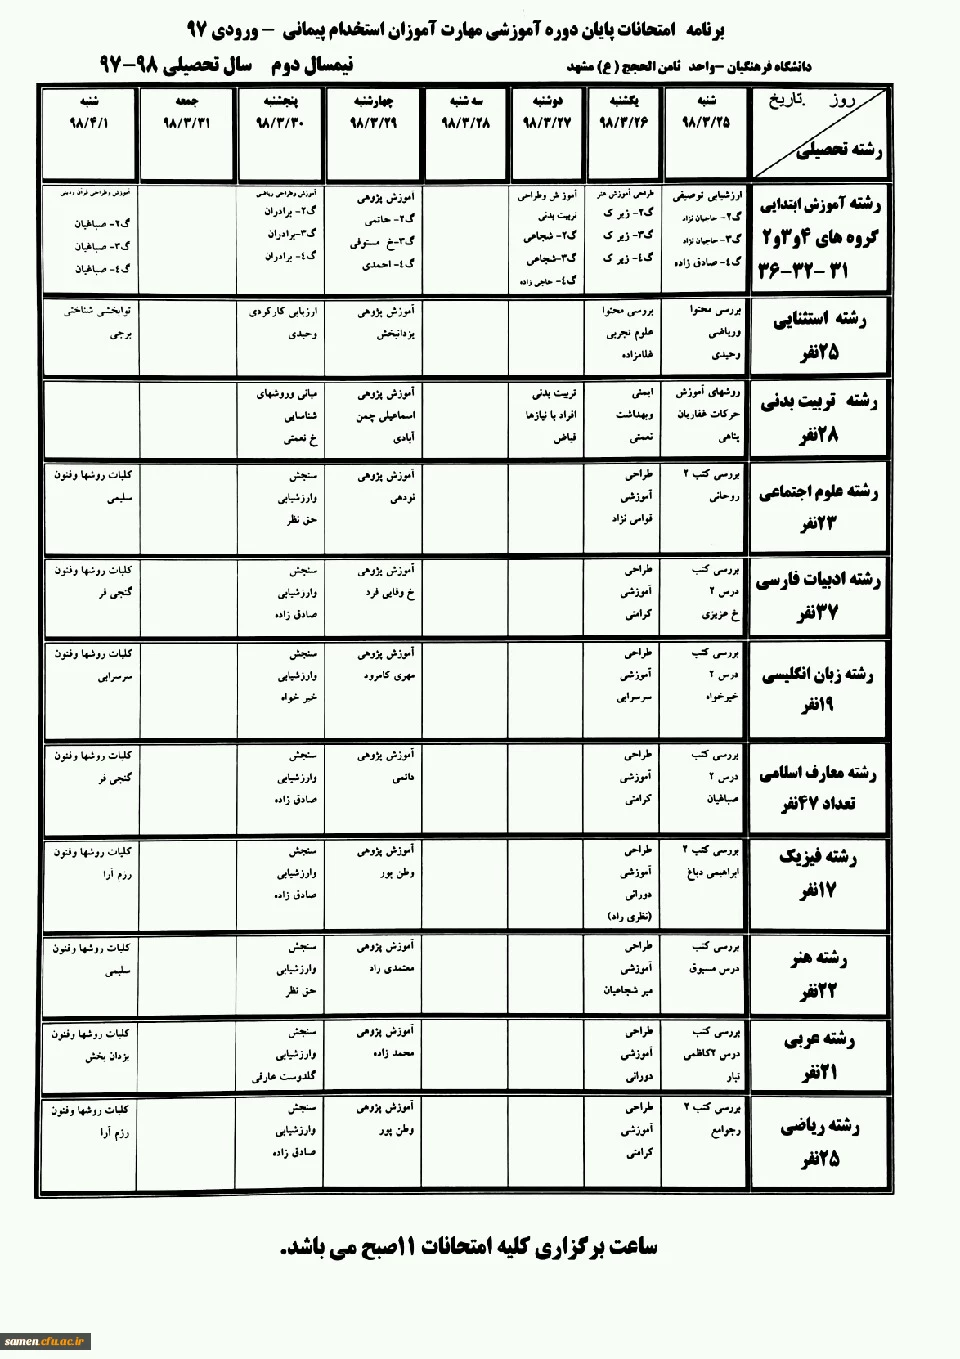 برنامه امتحانات پایان دوره آموزشی مهارت آموزان استخدام پیمانی – ورودی ۹۷
دانشگاه فرهنگیان –واحد ثامن الحجج (ع) مشهد نیمسال دوم سال تحصیلی ۹۸–۹۷
روز تاریخ
رشته تحصیلی
شنبه
۹۸/۳/۲۵
یکشنبه
۹۸/۳/۲۶
دوشنبه
۹۸/۳/۲۷
سه شنبه
۹۸/۳/۲۸
چهارشنبه
۹۸/۳/۲۹
پنجشنبه
۹۸/۳/۳۰
جمعه
۹۸/۳/۳۱
شنبه
۹۸/۴/۱
رشته آموزش ابتدایی
گروه های ۲و۳و۴
۳۱ –۳۲–۳۶
ارزشیابی توصیفی
گ۲- حاجیان نژاد
گ۳- حاجیان نژاد
گ٤- صادق زاده
طراحی آموزش هنر
گ۲- زیر ک
گ۳- زیر ک
گ٤- زیر ک
آموز ش وطراحی
تربیت بدنی
گ۲- شجاعی
گ۳-شجاعی
گ٤- حاجی زاده
آموزش پژوهی
گ۲- حاتمی
گ۳-خ مستوفی
گ٤- احمدی
آموزش وطراحی ریاضی
گ۲- برادران
گ۳-برادران
گ٤- برادران
آموزش وطراحی قرآن ودینی
گ٦- صباغیان
گ۳- صباغیان
گ٤- صباغیان
رشته استثنایی
۲۵نفر
بررسی محتوا
وریاضی
وحیدی
بررسی محتوا
علوم تجربی
غلامزاده
آموزش پژوهی
یزدانبخش
ارزیابی کارکردی
وحیدی
توانبخشی شناختی
برجی
رشته تربیت بدنی
۲۸نفر
روشهای آموزش
حرکات غفاریان
پناهی
ایمنی
وبهداشت
نعمتی
تربیت بدنی
افراد با نیازها
فیاض
آموزش پژوهی
اسماعیلی چمن
آبادی
مبانی وروشهای
شناسایی
خ نعمتی
رشته علوم اجتماعی
۲۳نفر
بررسی کتب ۲
روحانی
طراحی
آموزشی
قوامی نژاد
آموزش پژوهی
نودهی
سنجش
وارزشیابی
حق نظر
کلیات روشها وفنون
سلیمی
رشته ادبیات فارسی
۳۷نفر
بررسی کتب
درس ۲
خ عزیزی
طراحی
آموزشی
کرامتی
آموزش پژوهی
خ وفایی فرد
سنجش
وارزشیابی
صادق زاده
کلیات روشها وفنون
گنجی فر
رشته زبان انگلیسی
۱۹نفر
بررسی کتب
درس ۲
خیرخواه
طراحی
آموزشی
سرسرابی
آموزش پژوهی
مهری کامرود
سنجش
وارزشیابی
خیر خواه
کلیات روشها وفنون
سرسرابی
رشته معارف اسلامی
تعداد ۴۷نفر
بررسی کتب
درس ۲
صباغیان
طراحی
آموزشی
کرامتی
آموزش پژوهی
هاتمی
سنجش
وارزشیابی
صادق زاده
کلیات روشها وفنون
گنجی فر
رشته فیزیک
۱۷نفر
بررسی کتب ۲
ابراهیمی دباغ
طراحی
آموزشی
دورانی
(نظری راد)
آموزش پژوهی
وطن پور
سنجش
وارزشیابی
صادق زاده
کلیات روشها وفنون
رزم آرا
رشته هنر
۲۲نفر
بررسی کتب
درس مسبوق
طراحی
آموزشی
میر شجاعیان
آموزش پژوهی
معتمدی راد
سنجش
وارزشیابی
حق نظر
کلیات روشها وفنون
سلیمی
رشته عربی
۲۱نفر
بررسی کتب
درس ۲کاظمی
تبار
طراحی
آموزشی
دورانی
آموزش پژوهی
محمد زاده
سنجش
وارزشیابی
گلدوست عارفی
کلیات روشها وفنون
یزدان بخش
رشته ریاضی
۲۵نفر
بررسی کتب ۲
رجوامع
طراحی
آموزشی
کرامتی
آموزش پژوهی
وطن پور
سنجش
وارزشیابی
صادق زاده
کلیات روشها وفنون
رزم آرا
ساعت برگزاری کلیه امتحانات ۱۱صبح می باشد.
samen.cfu.ac.ir